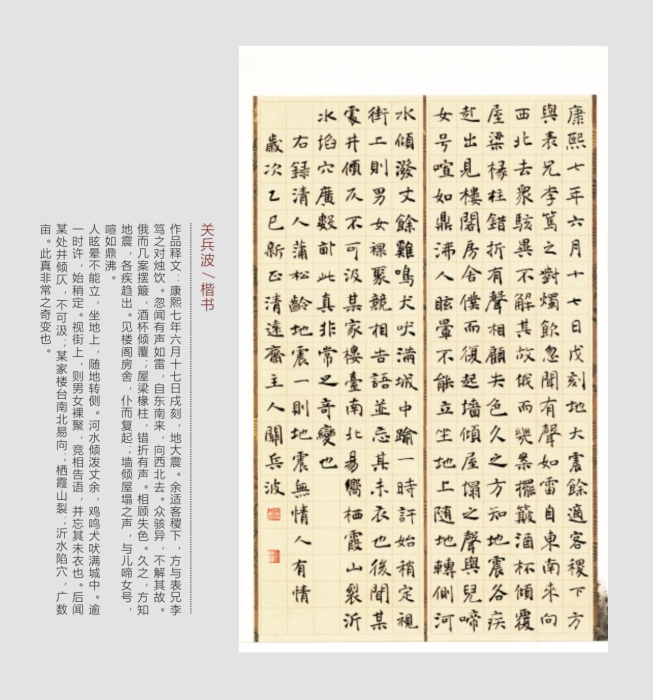 康熙七年六月十七日戌刻地大震餘適客稷下方
與表兄李篤之對燭飲忽聞有聲如雷自東南来向
西北去衆駭異不解其故俄而幾案擺簸酒杯傾覆
屋梁椽柱錯折有聲相顧失色久之方知地震各疾
出見樓閣房舍僕而復起墻傾屋塌之聲與兒啼
女号喧如鼎沸人眩暈不能立坐地上随地轉側河
水傾潑丈餘雞鳴犬吠滿城中踰一時許始稍定視
街上則男女裸聚競相告語並忘其未衣也後聞某
處井傾仄不可汲某家樓臺南北易嚮栖霞山裂沂
水陷穴廣數畝此真非常之奇變也
右録清人蒲松齡地震一則地震無情人有情
歲次乙巳新正清遠齋主人關兵波
关兵波／楷书
作品释文：康熙七年六月十七日戌刻，地大震。余适客稷下，方与表兄李
笃之对烛饮。忽闻有声如雷，自东南来，向西北去。众骇异，不解其故。
俄而几案摆簸，酒杯倾覆；屋梁椽柱，错折有声。相顾失色。久之，方知
地震，各疾趋出。见楼阁房舍，仆而复起；墙倾屋塌之声，与儿啼女号，
喧如鼎沸。
人眩晕不能立，坐地上，随地转侧。河水倾泼丈余，鸡鸣犬吠满城中。逾
一时许，始稍定。视街上，则男女裸聚，竞相告语，并忘其未衣也。后闻
某处井倾仄，不可汲；某家楼台南北易向；栖霞山裂；沂水陷穴，广数
亩。此真非常之奇变也。